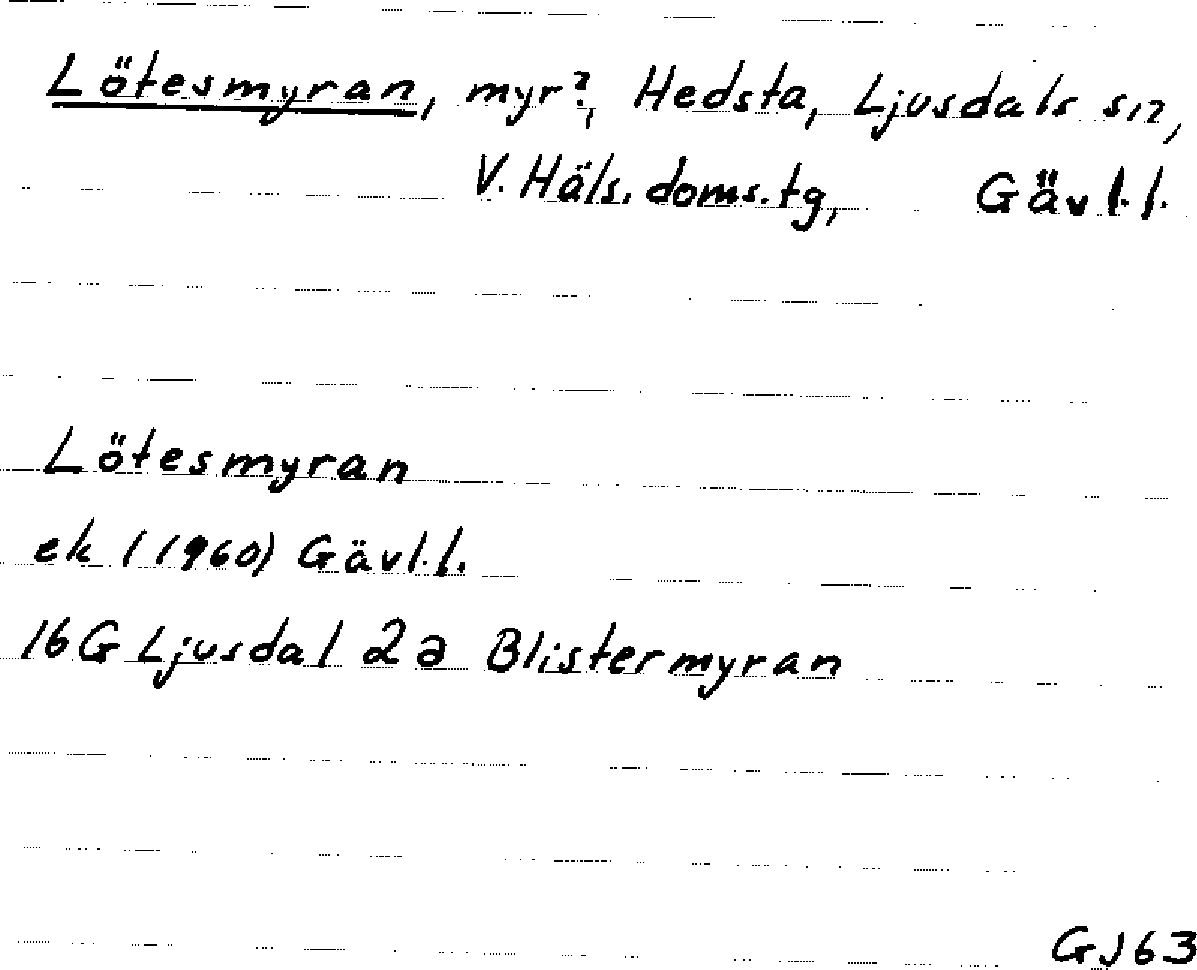 Lötesmyran, myr?, Hedsta, Ljusdals sn,
V. Häls. doms.tg, Gävl.l.
Lötesmyran
ek (1960) Gävl.l.
16G Ljusdal 2a Blistermyran
GJ63